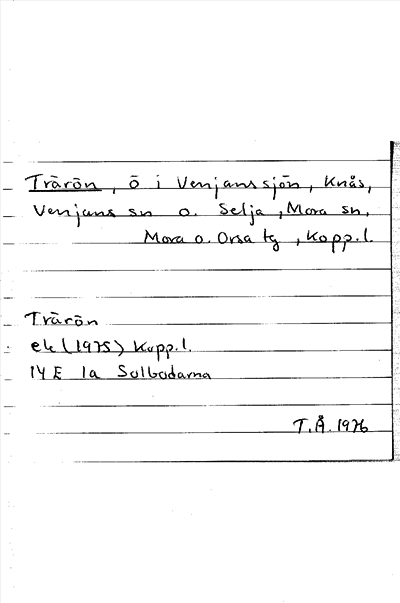 Trärön, ö i Venjanssjön, Knås,
Venjans sn o. Selja, Mora sn,
Mora o. Orsa tg, Kopp.l.
Trärön
ek (1975) Kopp.l.
14 E 1a Solbodarna
T.Å. 1976